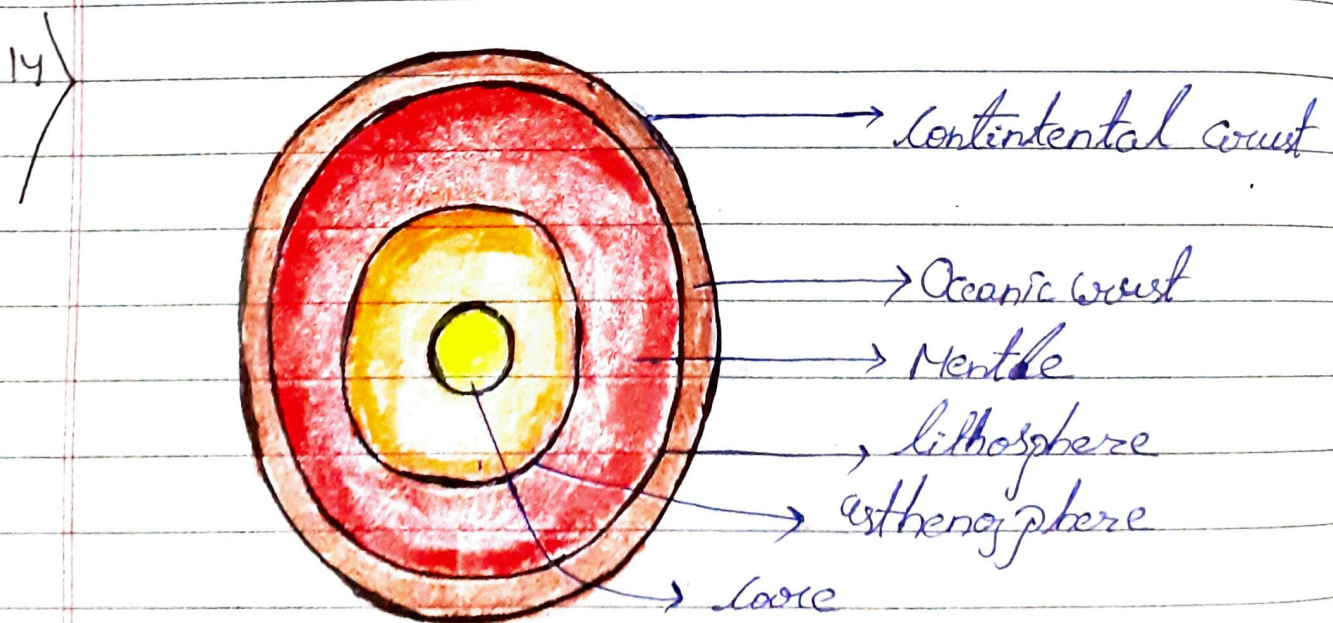 14)
Contintental crust
Oceanic crust
Mentle
lithosphere
asthenosphere
Core